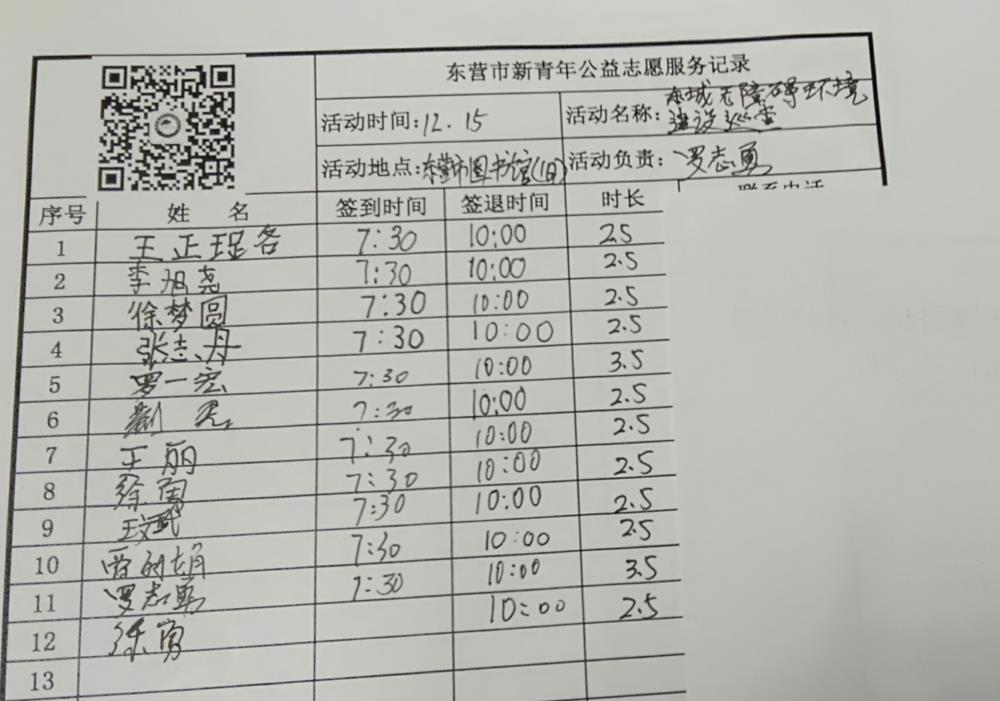 东营市新青年公益志愿服务记录
活动时间:12.15 活动名称:东城无障碍环境
建设巡查
活动地点:东营市图书馆(旧) 活动负责:罗志勇
序号 姓 名 签到时间 签退时间 时长 联系电话
1 王正 7:30 10:00 2.5
2 李旭尧 7:30 10:00 2.5
3 徐梦圆 7:30 10:00 2.5
4 张志丹 7:30 10:00 2.5
5 罗一宏 7:30 10:00 3.5
6 7:30 10:00 2.5
7 王丽 7:30 10:00 2.5
8 徐勇 7:30 10:00 2.5
9 7:30 10:00 2.5
10 7:30 10:00 2.5
11 罗志勇 7:30 10:00 3.5
12 徐勇 10:00 2.5
13